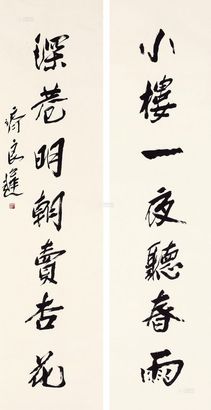 小樓一夜聽春雨
深巷明朝賣杏花
齊良遲